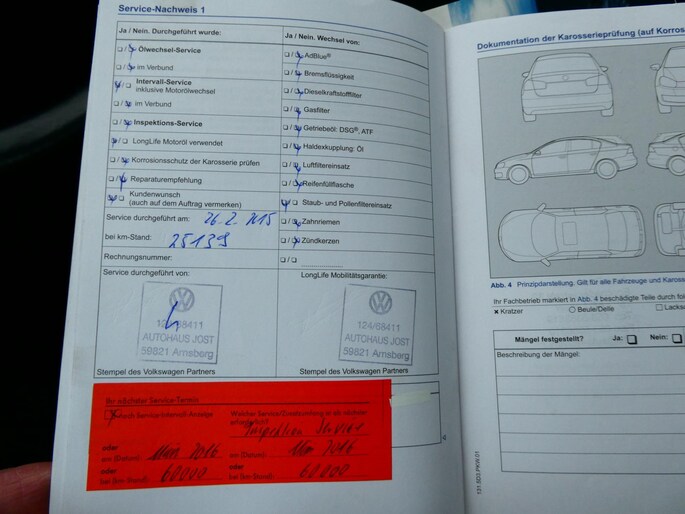 Service-Nachweis 1
Ja / Nein. Durchgeführt wurde:
Ölwechsel-Service
im Verbund
Intervall-Service
inklusive Motorölwechsel
im Verbund
Inspektions-Service
LongLife Motoröl verwendet
Korrosionsschutz der Karosserie prüfen
Reparaturempfehlung
Kundenwunsch
(auch auf dem Auftrag vermerken)
Service durchgeführt am: 26.2.2015
bei km-Stand: 25139
Rechnungsnummer:
Service durchgeführt von:
124/68411
AUTOHAUS JOST
59821 Arnsberg
Stempel des Volkswagen Partners
Ja / Nein. Wechsel von:
AdBlue®
Bremsflüssigkeit
Dieselkraftstofffilter
Gasfilter
Getriebeöl: DSG®, ATF
Haldexkupplung: Öl
Luftfiltereinsatz
Reifenfüllflasche
Staub- und Pollenfiltereinsatz
Zahnriemen
Zündkerzen
LongLife Mobilitätsgarantie:
124/68411
AUTOHAUS JOST
59821 Arnsberg
Stempel des Volkswagen Partners
Ihr nächster Service-Termin
nach Service-Intervall-Anzeige
oder
am (Datum): Mai 2016
oder
bei (km-Stand): 60000
Welcher Service/Zusatzumfang ist als nächster
erforderlich?
Inspektion Service
oder
am (Datum): Mai 2016
oder
bei (km-Stand): 60000
Dokumentation der Karosserieprüfung (auf Korros
Abb. 4 Prinzipdarstellung. Gilt für alle Fahrzeuge und Karosse
Ihr Fachbetrieb markiert in Abb. 4 beschädigte Teile durch fol
Kratzer
Beule/Delle
Lacks
Mängel festgestellt? Ja: Nein:
Beschreibung der Mängel:
131.5D3.PKW.01